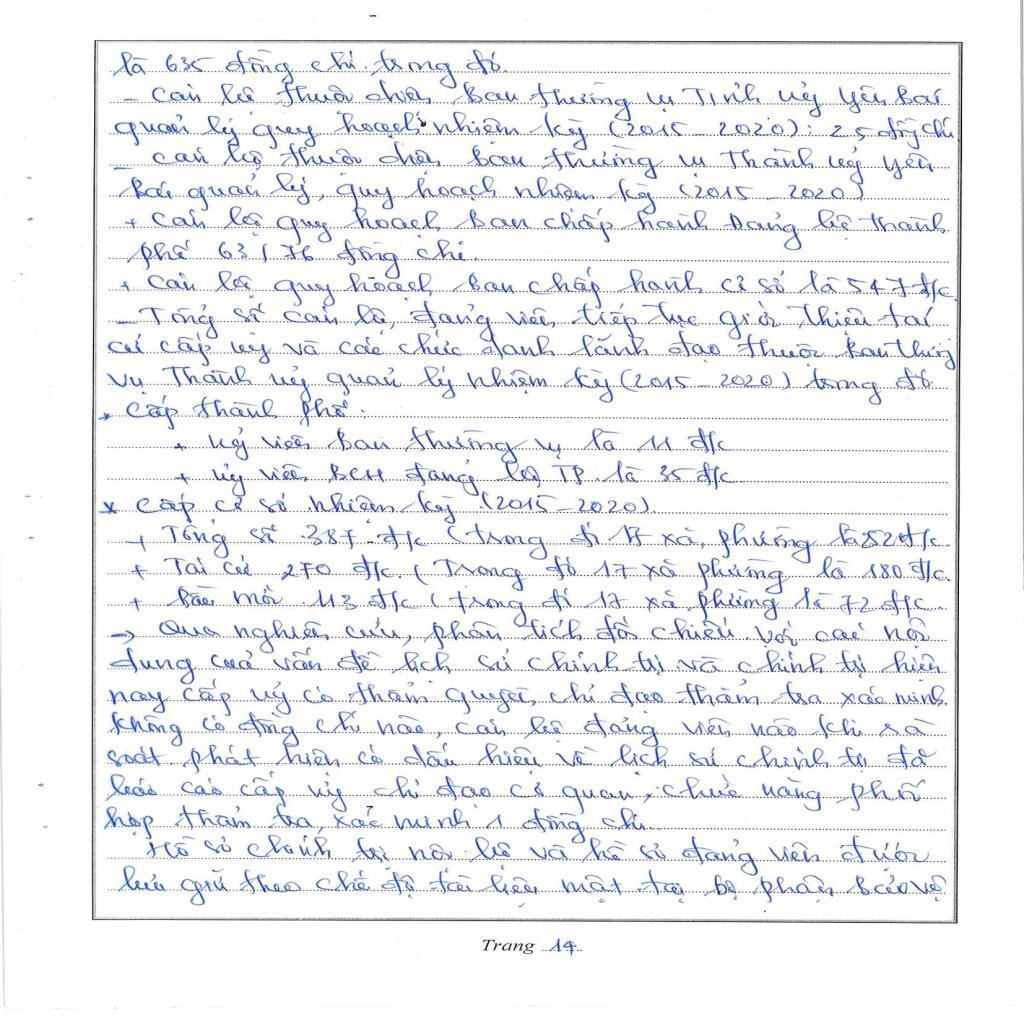 là 635 đồng chí. trong đó.
- Cán bộ thuộc diện Ban thường vụ Tỉnh uỷ Yên Bái
quản lý quy hoạch nhiệm kỳ (2015 - 2020): 25 đồng chí
- Cán bộ thuộc diện Ban thường vụ Thành uỷ Yên
Bái quản lý, quy hoạch nhiệm kỳ (2015 - 2020)
+ Cán bộ quy hoạch Ban chấp hành Đảng bộ thành
phố 63/76 đồng chí.
+ Cán bộ quy hoạch Ban chấp hành cơ sở là 547 đ/c
- Tổng số cán bộ, đảng viên tiếp tục giới thiệu tái
cử cấp uỷ và các chức danh lãnh đạo thuộc Ban thường
vụ Thành uỷ quản lý nhiệm kỳ (2015 - 2020) trong đó
* Cấp thành phố.
+ Uỷ viên Ban thường vụ là 11 đ/c
+ Uỷ viên BCH đảng bộ TP. là 35 đ/c
* Cấp cơ sở nhiệm kỳ (2015-2020)
+ Tổng số 387 đ/c (trong đó 17 xã, phường là 252 đ/c.
+ Tái cử 270 đ/c. (Trong đó 17 xã phường là 180 đ/c.
+ Bầu mới 113 đ/c (trong đó 17 xã phường là 72 đ/c.
-> Qua nghiên cứu, phân tích đối chiếu với các nội
dung của vấn đề lịch sử chính trị và chính trị hiện
nay cấp uỷ có thẩm quyền chỉ đạo thẩm tra xác minh
không có đồng chí nào, cán bộ đảng viên nào khi rà
soát phát hiện có dấu hiệu về lịch sử chính trị đã
báo cáo cấp uỷ chỉ đạo cơ quan, chức năng phối
hợp thẩm tra, xác minh 1 đồng chí.
Hồ sơ chính trị nội bộ và hồ sơ đảng viên được
lưu giữ theo chế độ tài liệu mật tại bộ phận bảo vệ
Trang 14